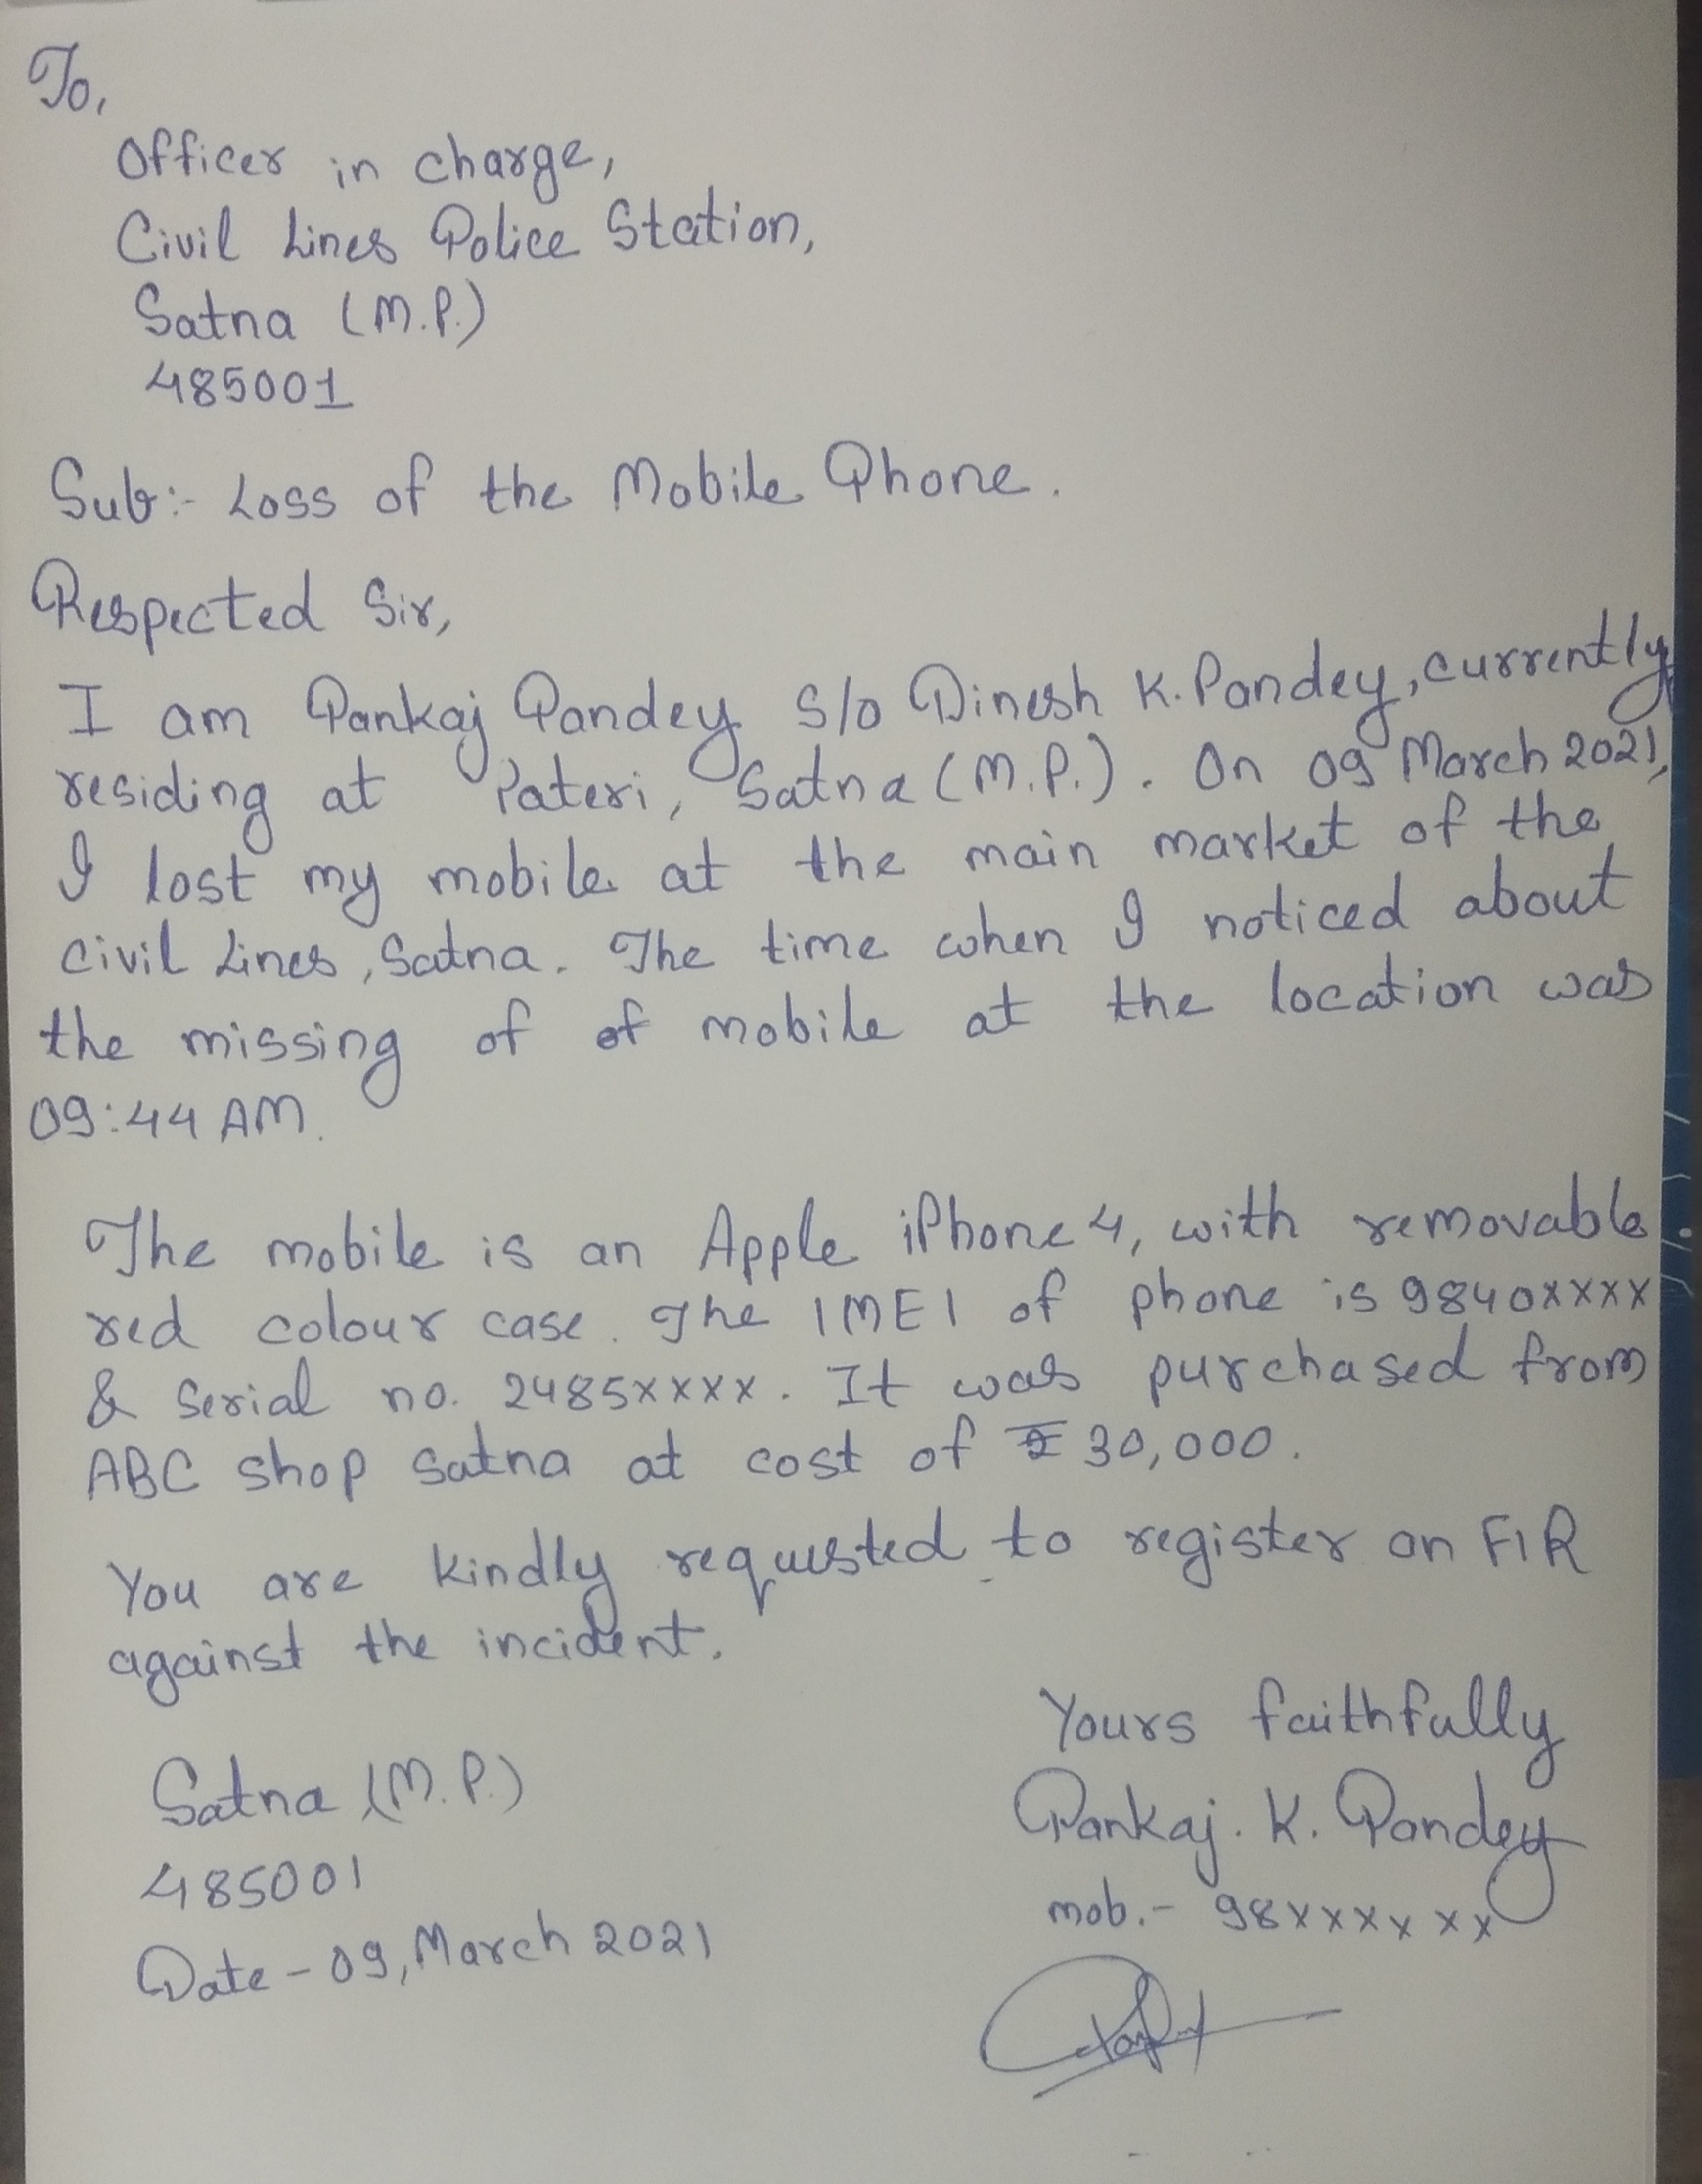 To,
Officer in charge,
Civil Lines Police Station,
Satna (M.P.)
485001
Sub:- Loss of the Mobile Phone.
Respected Sir,
I am Pankaj Pandey S/o Dinesh K. Pandey, currently
residing at Pateri, Satna (M.P.). On 09 March 2021,
I lost my mobile at the main market of the
civil Lines, Satna. The time when I noticed about
the missing of of mobile at the location was
09:44 AM.
The mobile is an Apple iPhone 4, with removable
red colour case. The IMEI of phone is 9840xxxx
& Serial no. 2485xxxx. It was purchased from
ABC shop Satna at cost of ₹ 30,000.
You are kindly requested to register an FIR
against the incident.
Yours faithfully
Satna (M.P.)
Pankaj. K. Pandey
485001
mob.- 98xxxxxx
Date - 09, March 2021